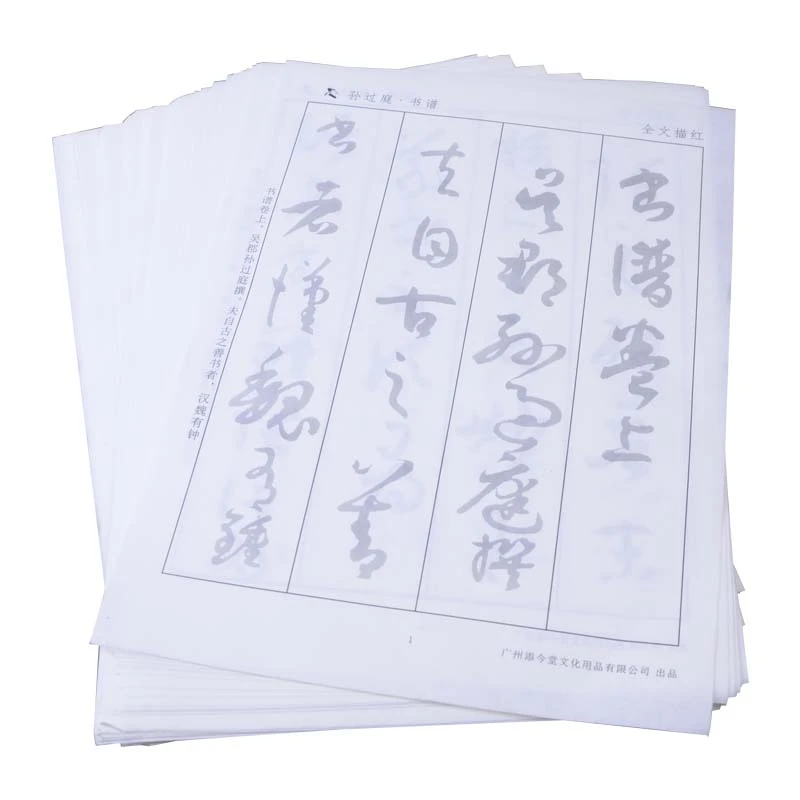 孙过庭·书谱
全文描红
書譜卷上
吳郡孫過庭撰
夫自古之善
書者漢魏有鍾
书谱卷上，吴郡孙过庭撰。夫自古之善书者，汉魏有钟
1
广州添今堂文化用品有限公司 出品